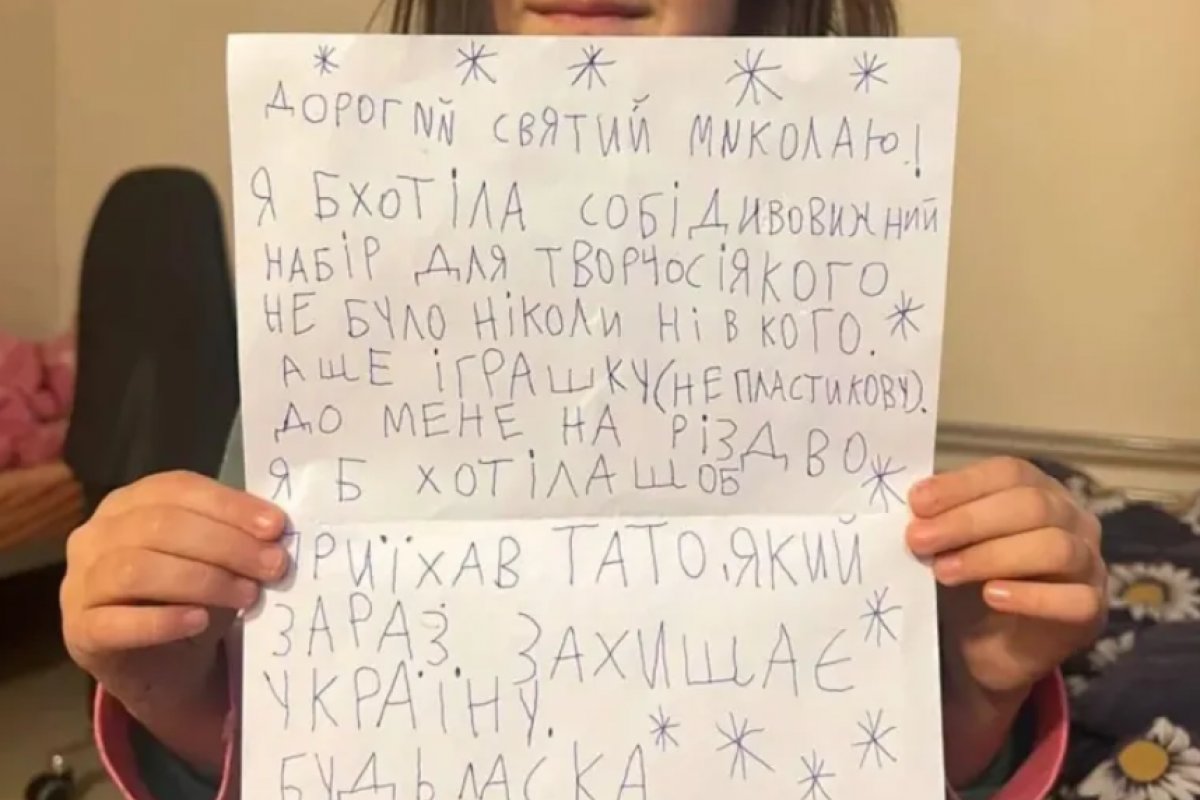 ДОРОГИЙ СВЯТИЙ МИКОЛАЮ!
Я Б ХОТІЛА СОБІ ДИВОВИЖНИЙ
НАБІР ДЛЯ ТВОРЧОСІ ЯКОГО
НЕ БУЛО НІКОЛИ НІ В КОГО.
А ЩЕ ІГРАШКУ (НЕ ПЛАСТИКОВУ).
ДО МЕНЕ НА РІЗДВО
Я Б ХОТІЛА ЩОБ
ПРИЇХАВ ТАТО, ЯКИЙ
ЗАРАЗ ЗАХИЩАЄ
УКРАЇНУ.
БУДЬ ЛАСКА